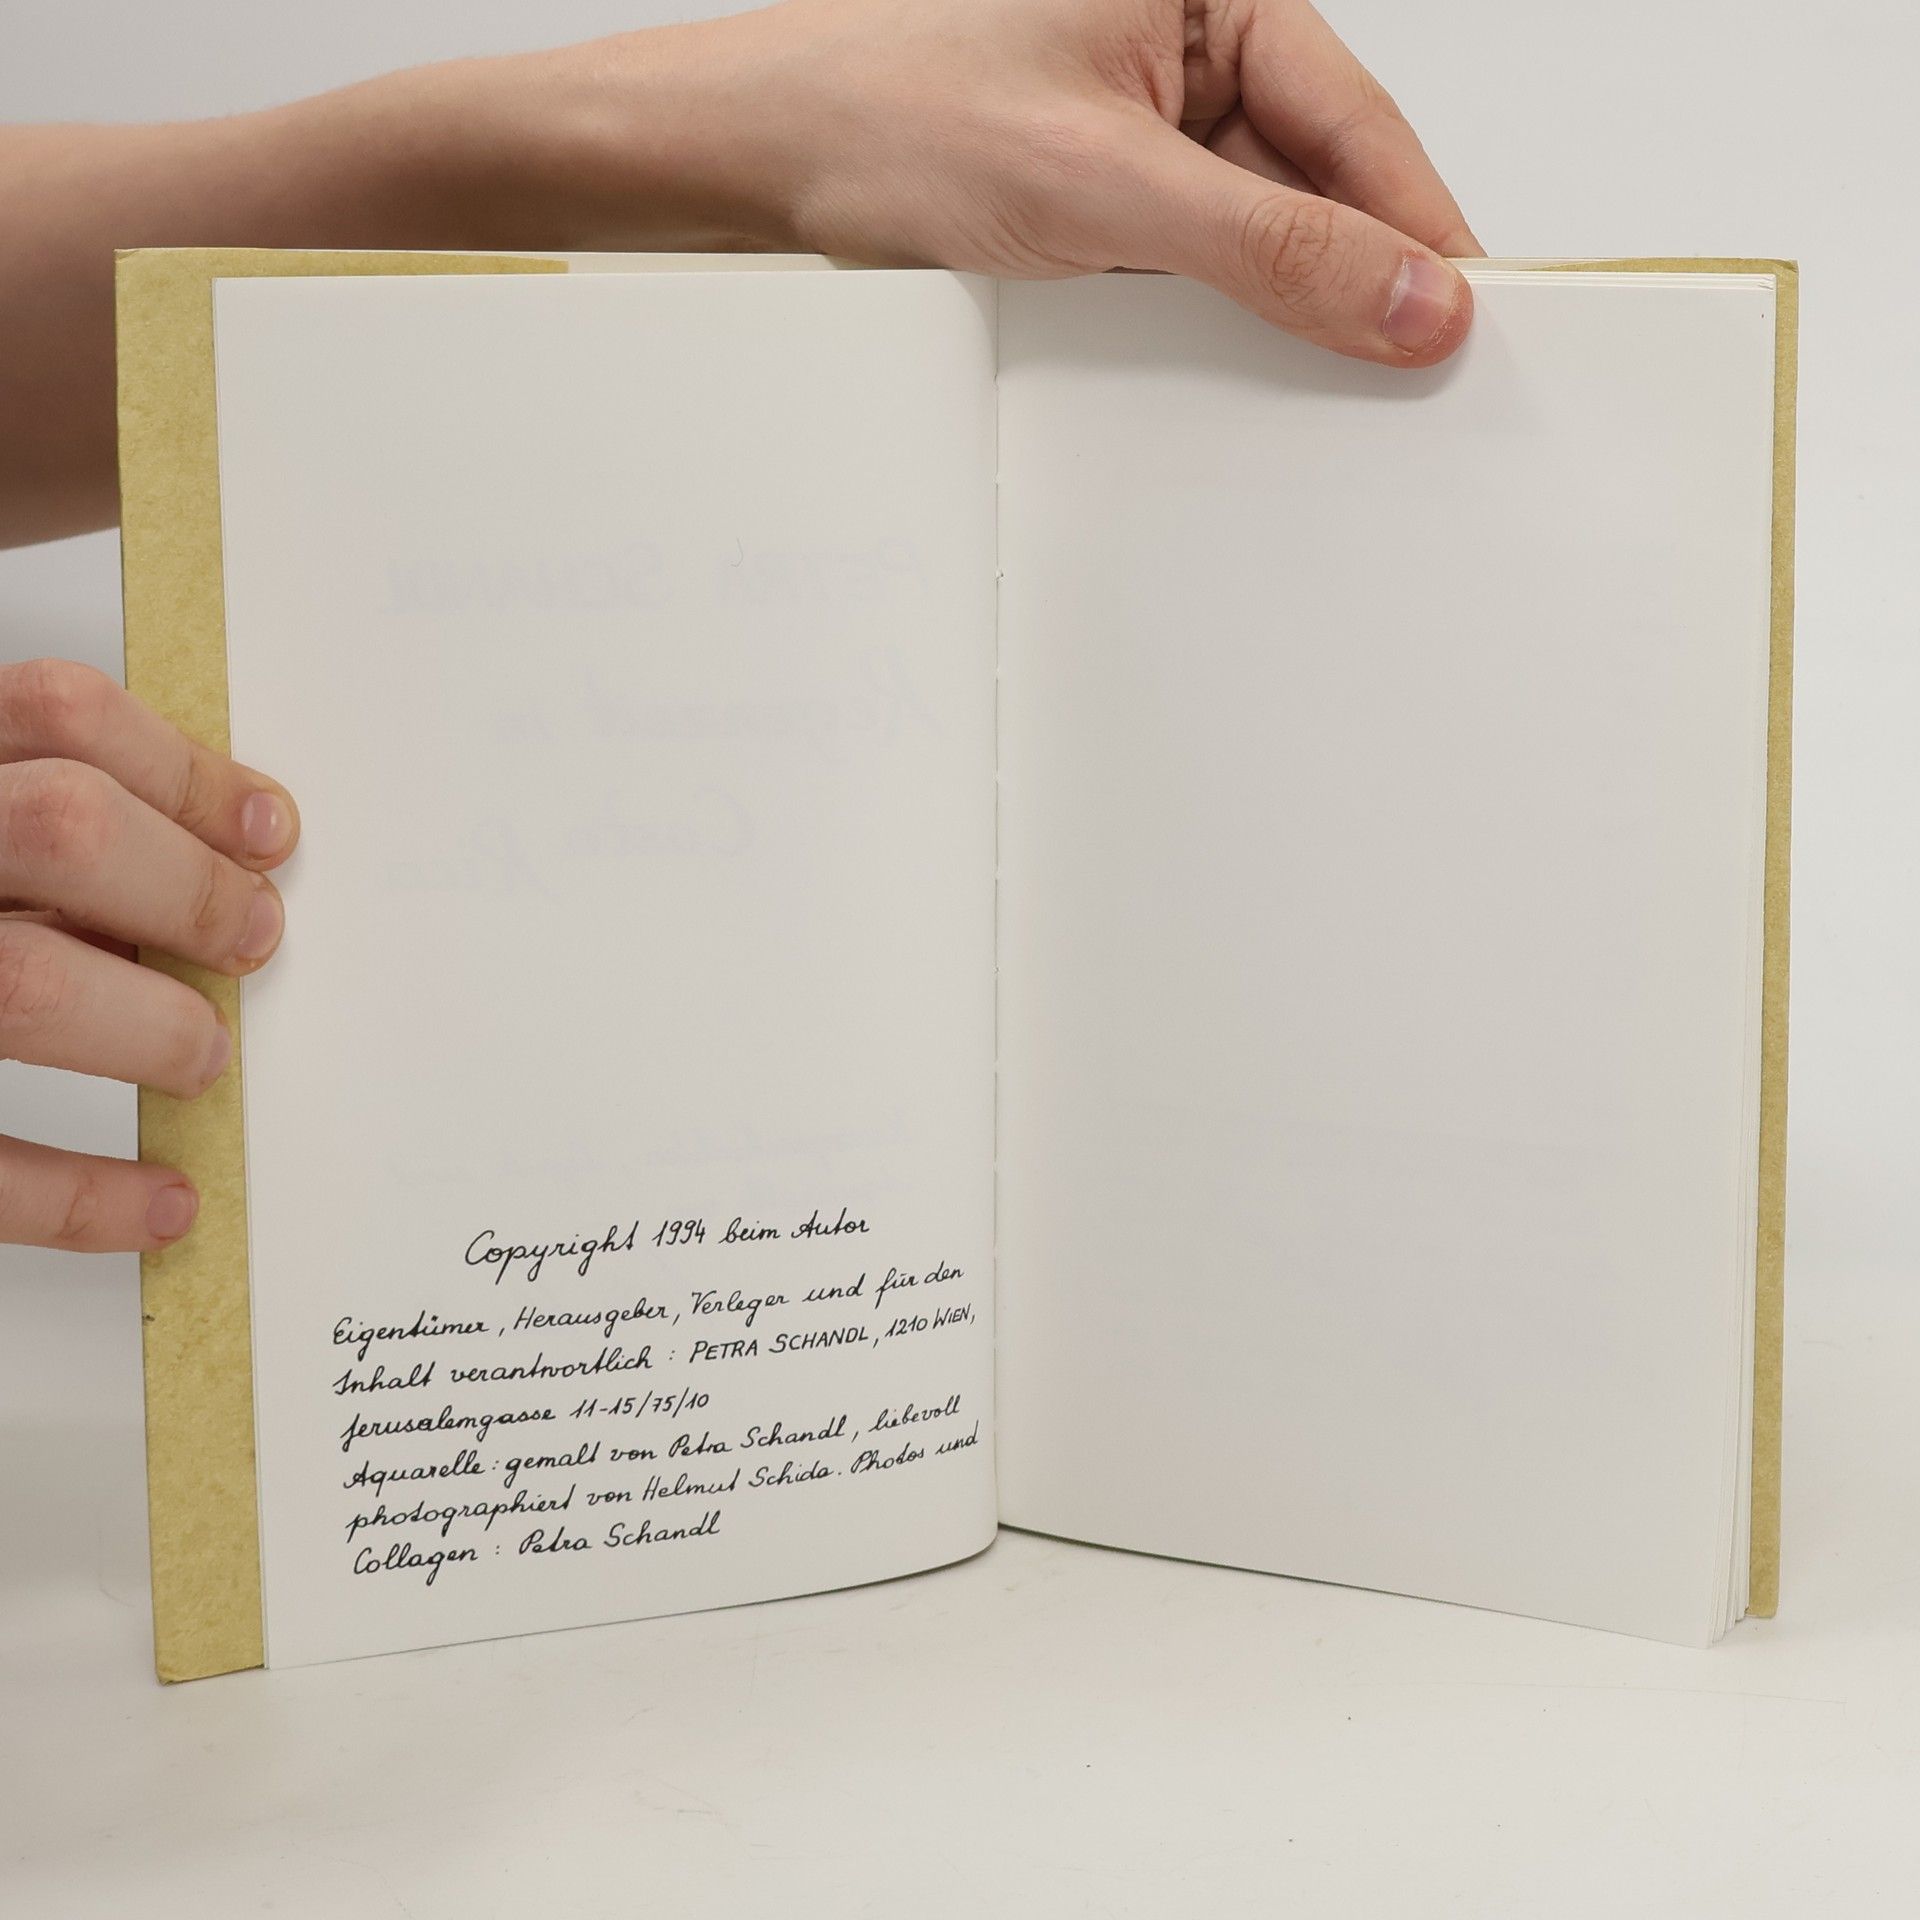 Copyright 1994 beim Autor
Eigentümer, Herausgeber, Verleger und für den
Inhalt verantwortlich : PETRA SCHANDL, 1210 WIEN,
Jerusalemgasse 11-15/75/10
Aquarelle: gemalt von Petra Schandl, liebevoll
photographiert von Helmut Schida. Photos und
Collagen : Petra Schandl